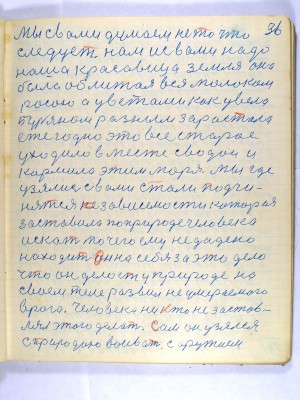 36
Мы с вами думаем не то что
следует. нам и с вами надо
наша красавица земля она
была облитая вся молоком
росою а цветами как увела
бурьяном разным заростала
ежегодно это все старое
уходило в месте с водой и
кормила этим моря. Мы где
узялис с вами стали подчи-
няться независимости которая
заставила по природе человека
искат то чего ему не дадено
находит. Он на себя за это дело
что он делос у природе на
своем теле развил не умераемого
врага. Человека ни кто не застав-
лял этого делат. Сам он узялся
с природою воюват. с оружием